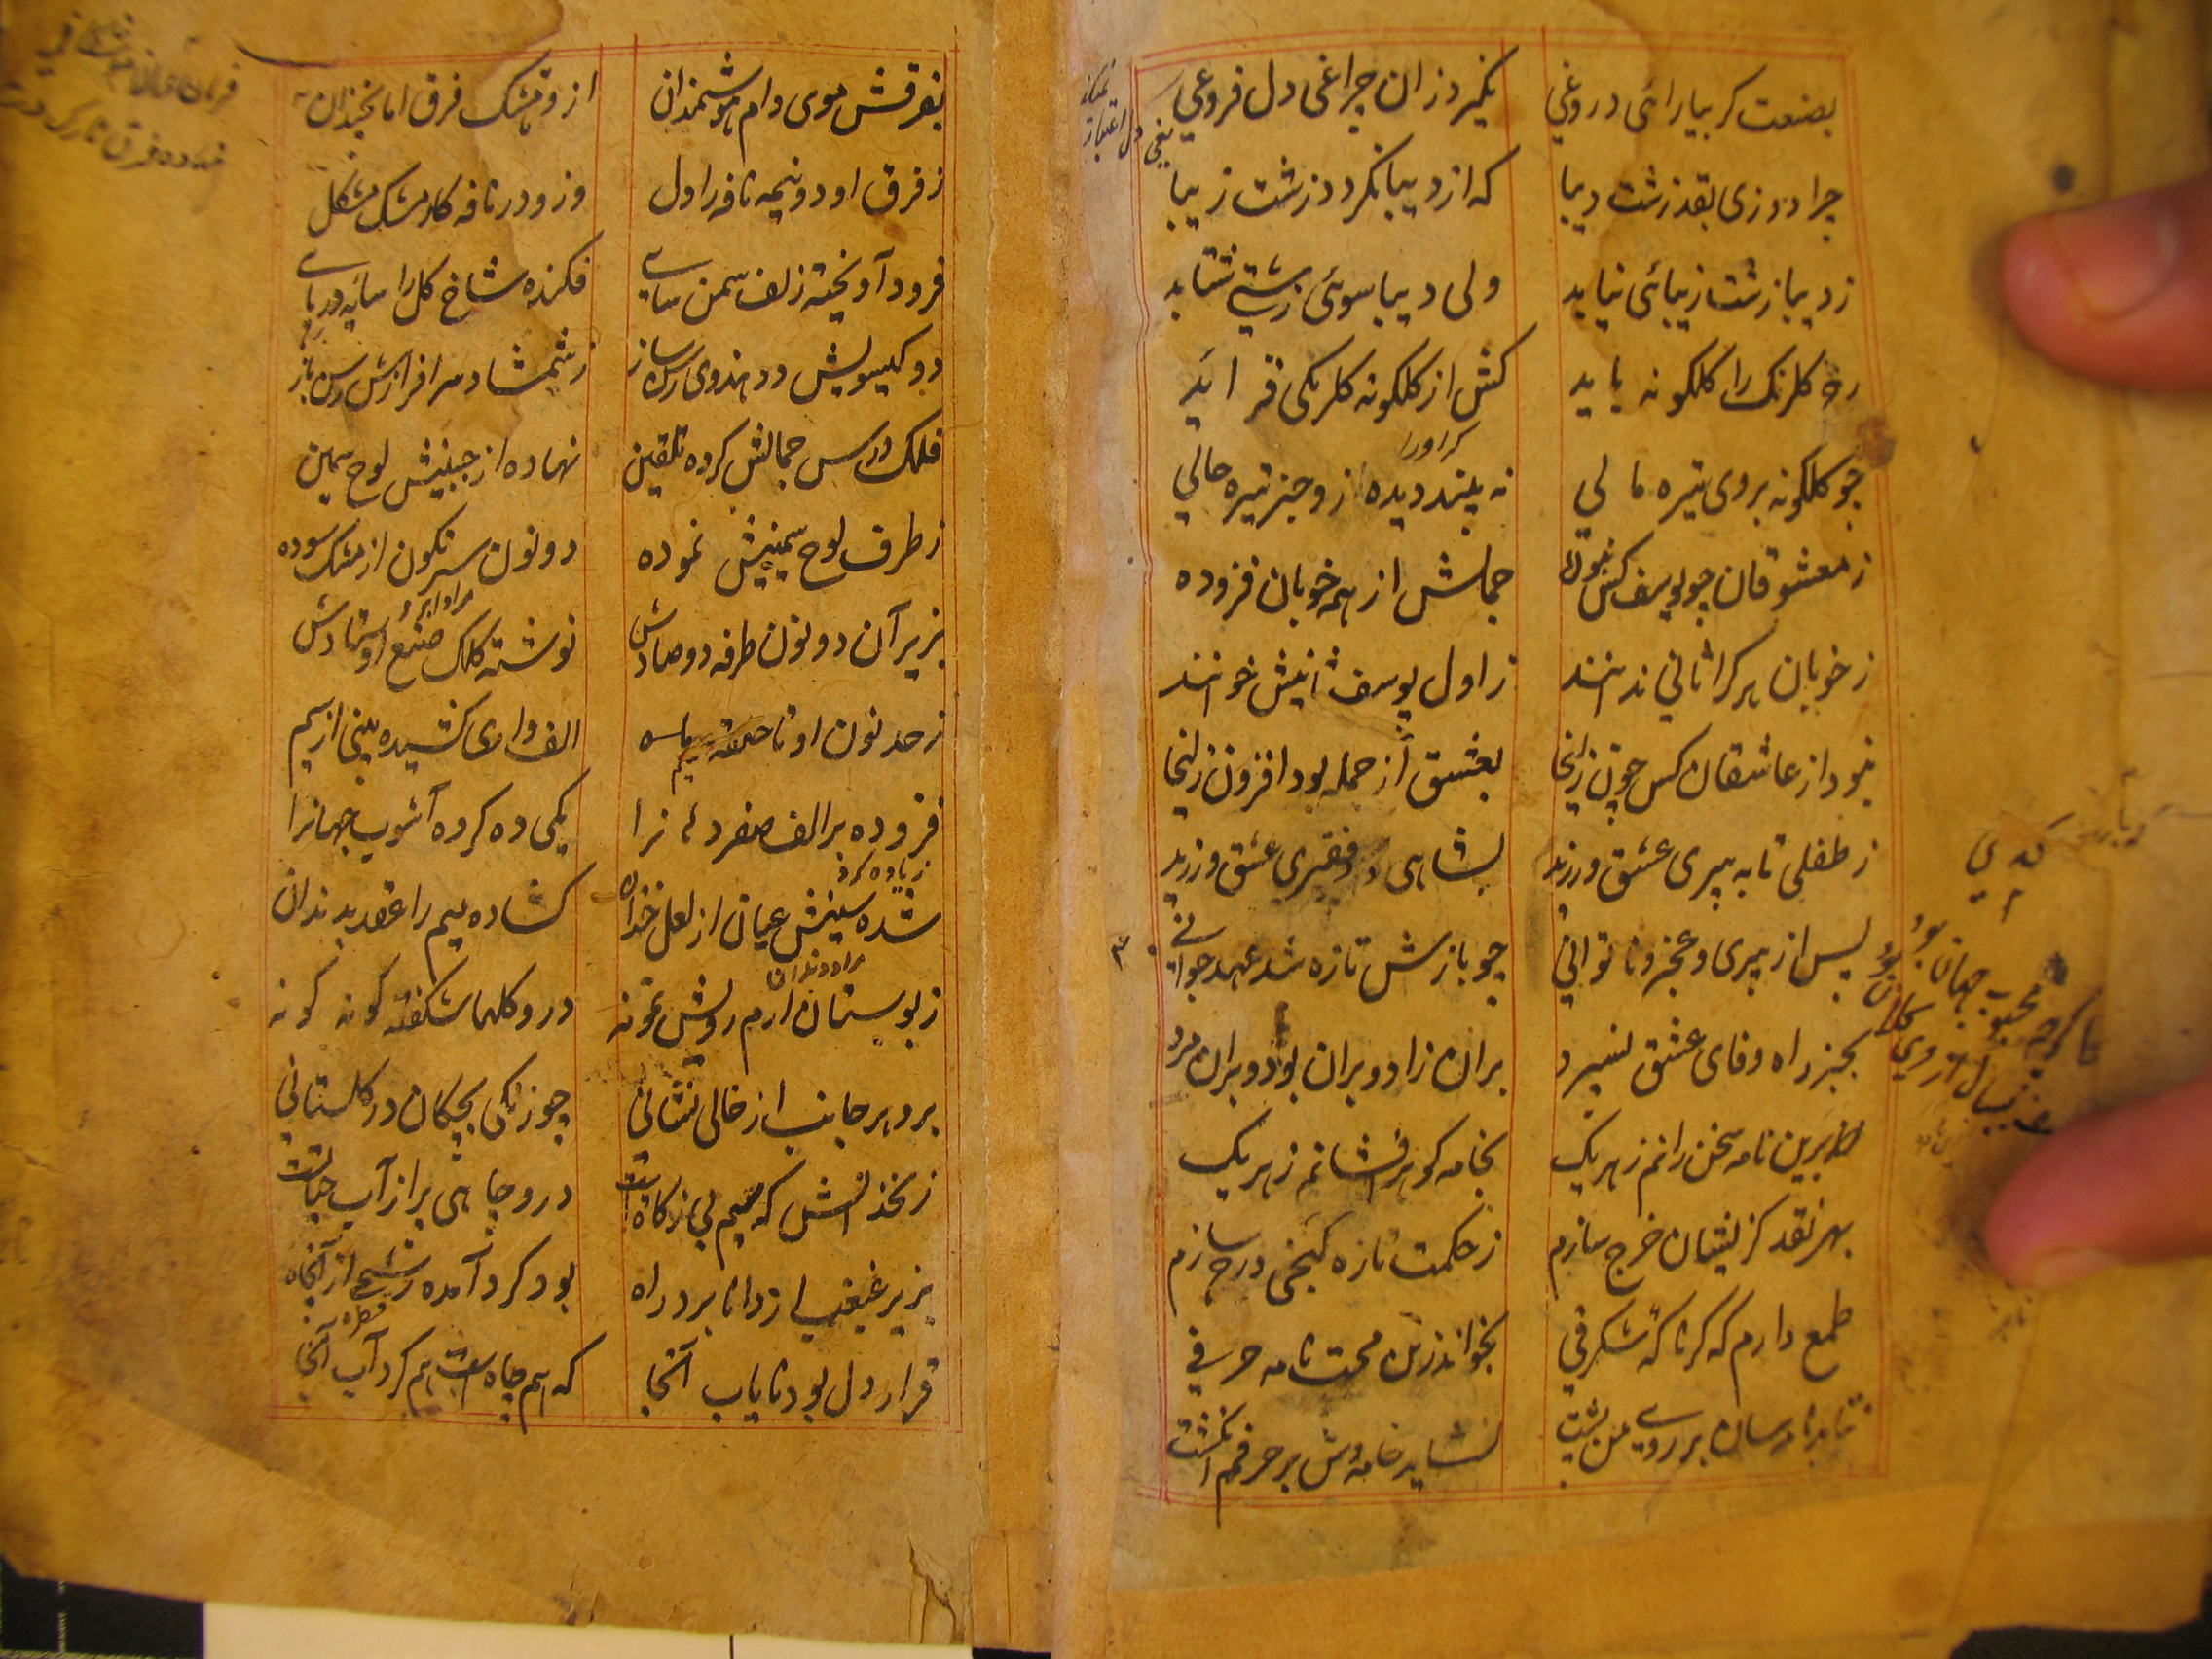 بصنعت کر بیارائی دروغی نکیرد زان چراغی دل فروغی
چرا دوزی بقد زشت دیبا که از دیبا نکردد زشت زیبا
ز دیبا زشت زیبائی نیابد ولی دیبا سوئی زشتی شتابد
رخ کلرنک را کلکونه باید کش از کلکونه کلرنکی فزاید
چو کلکونه بروی تیره مالی نه بیند دیده زو جز تیره حالی
ز معشوقان چو یوسف کس نبوده جمالش از همه خوبان فزوده
ز خوبان هر کرا ثانی ندانند ز اول یوسف ثانیش خوانند
نبود از عاشقان کس چون زلیخا بعشق از جمله بود افزون زلیخا
ز طفلی تا به پیری عشق ورزید بشاهی و فقیری عشق ورزید
پس از پیری و عجز و ناتوانی چو بازش تازه شد عهد جوانی
بجز راه وفای عشق نسپرد بران زاد و بران بود و بران مرد
برین نامه سخن رانم ز هر یک بخامه کوهر افشانم ز هر یک
بهر نقد کز ایشان خرج سازم ز حکمت تازه کنجی درج سازم
طمع دارم که کر ناکه شکرفی بخواند زین محبت نامه حرفی
نتابد نامه سان بر روی من پشت نساید خامه وش بر حرفم انکشت
بفرقش موی دام هوشمندان ازو تا مشک فرق اما نچندان
ز فرق او دو نیمه نافه را دل وزو در نافه کار مشک مشکل
فرود آویخته زلف سمن سای فکنده شاخ کل را سایه در پای
دو کیسویش دو هندوی رسن ساز ز شمشاد سرافرازش رسن باز
فلک درس جمالش کرده تلقین نهاده از جبینش لوح سیمین
ز طرف لوح سیمینش نموده دو نون سرنکون از مشک سوده
بزیر آن دو نون طرفه دو صادش نوشته کلک صنع اوستادش
ز حد نون او تا حلقه میم الف واری کشیده بینی از سیم
فزوده بر الف صفر دهانرا یکی ده کرده آشوب جهانرا
زیاده کرد
شده سینش عیان از لعل خندان کشاده میم را عقد بدندان
مراد دندان
ز بوستان ارم رویش نمونه درو کلها شکفته کونه کونه
برو هر جانب از خالی نشانی چو زنکی بچکان در کلستانی
زنخدانش که میم بی زکاتست درو چاهی پر از آب حیاتست
بزیر غبغب ار دانا برد راه بود کرد آمده رشحی از آنچاه
قرار دل بود نایاب آنجا که هم چاهست هم کرد آب آنجا